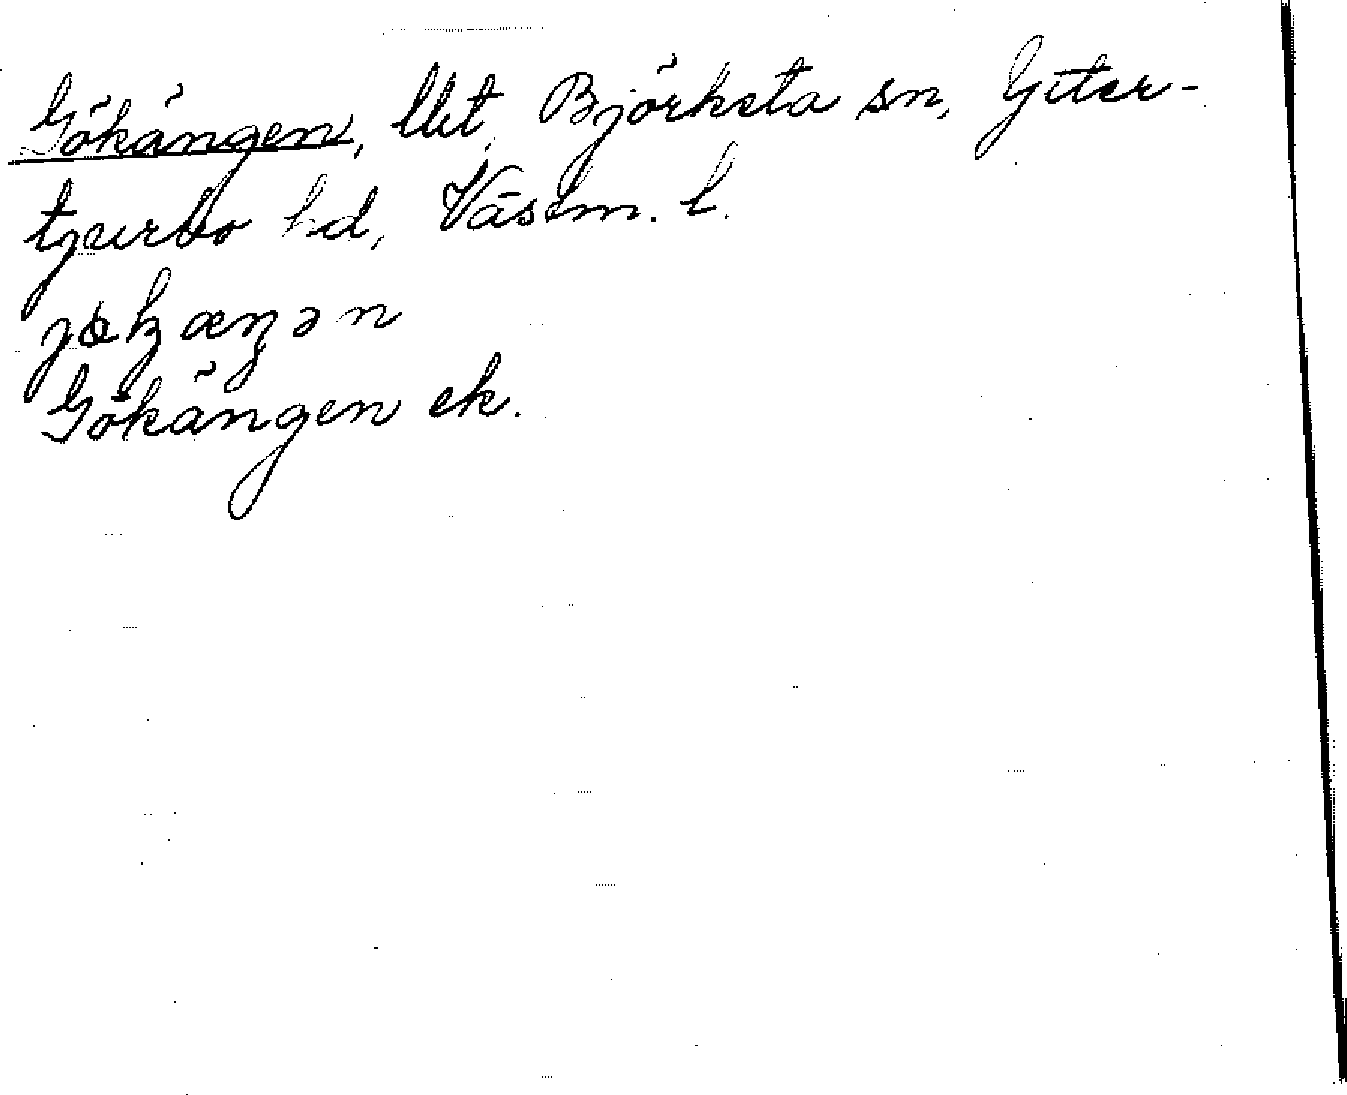 Gökängen, Ut, Björksta sn, Yter-
tjurbo hd, Västm. l.
jøkæŋən
Gökängen ek.